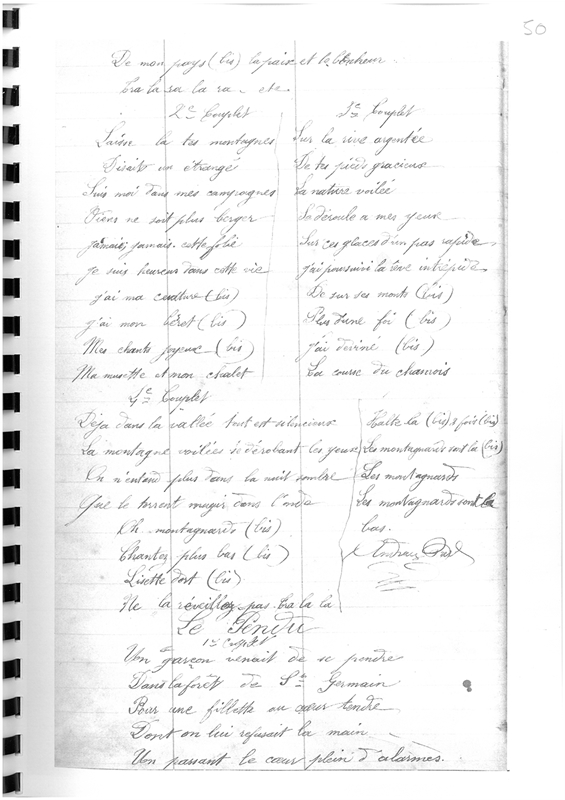 50
De mon pays (bis) la paix et le bonheur
tra la ra la ra - etc
2e Couplet
Laisse la tes montagnes
Disait un étrangé
Suis moi dans mes campagnes
Viens ne soit plus berger
jamais, jamais. cette folie
je suis heureux dans cette vie
j'ai ma ceulture (bis)
j'ai mon béret (bis)
Mes chants joyeux (bis)
Ma musette et mon chalet
3e Couplet
Sur la rive argentée
De tes pieds gracieux
La nature voilée
Se déroule a mes yeux
Sur ces glaces d'un pas rapide
j'ai poursuivi la intrépide
De sur ses monts (bis)
Plus d'une foi (bis)
j'ai deviné (bis)
La course du chamois
4e Couplet
Déja dans la vallée tout est silencieux
La montagne voilées se dérobant les yeux
On n'entend plus dans la nuit sombre
Que le torrent mugir dans l'onde
Oh montagnards (bis)
Chantez plus bas (bis)
Lisette dort (bis)
Ne la réveillez pas tra la la
Halte la (bis) 3 fois (bis)
Les montagnards sont la (bis)
Les montagnards
Les montagnards sont la
bas.
Le Pendu
1er Couplet
Un garçon venait de se pendre
Dans la forêt de St Germain
Pour une fillette au cœur tendre
Dont on lui refusait la main
Un passant le cœur plein d'alarmes.